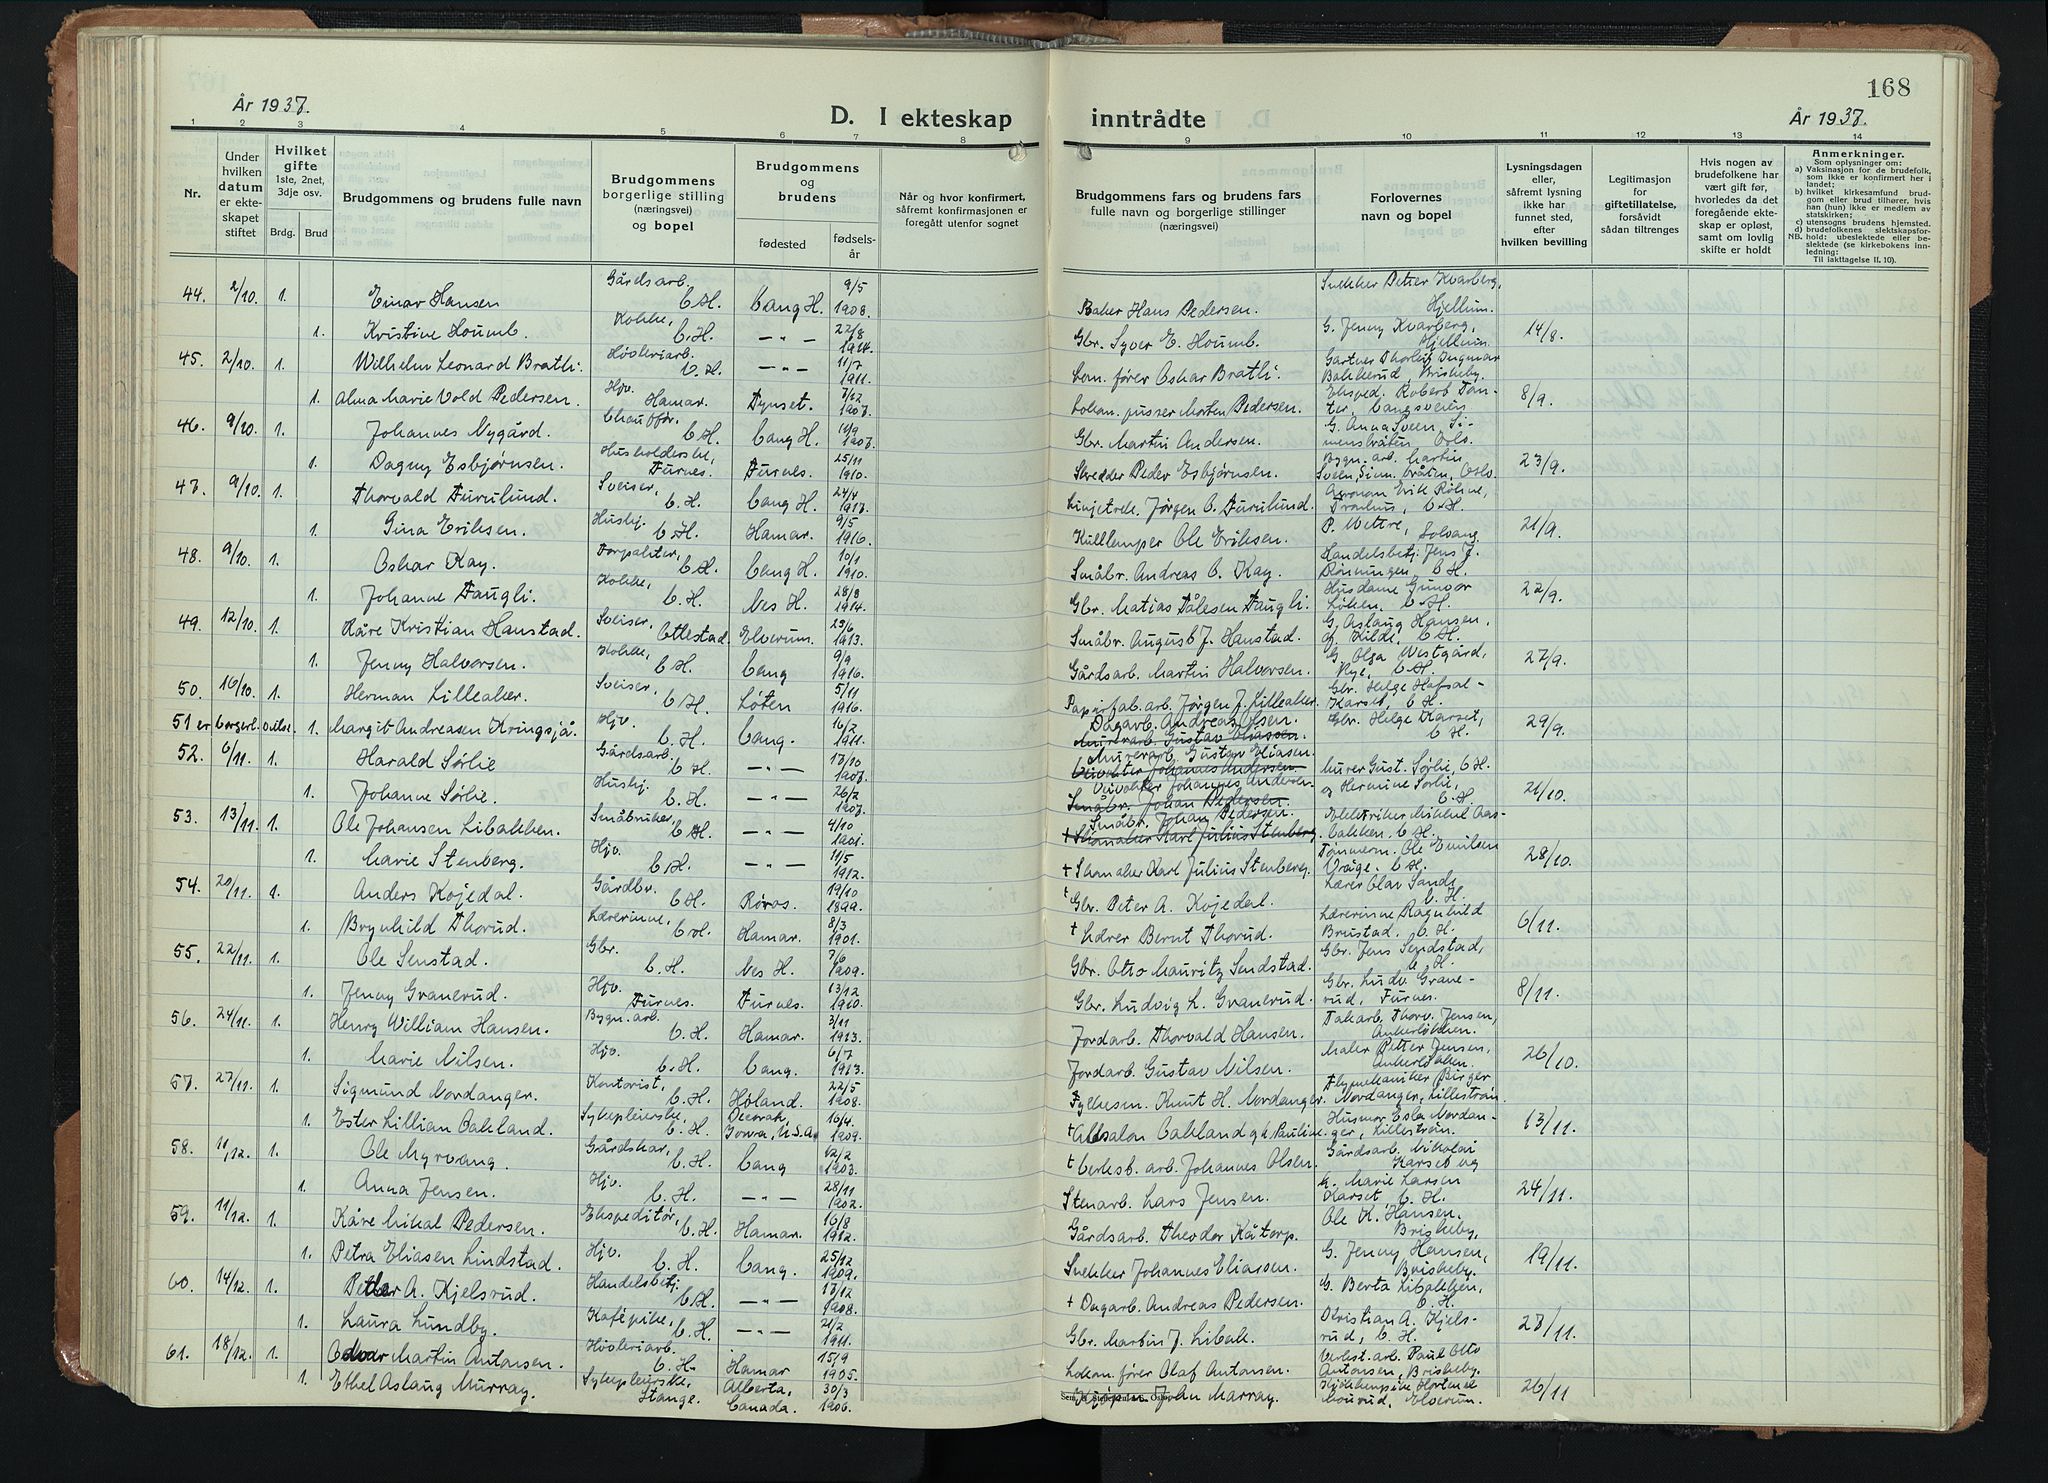 168
År 1937.
D. I ekteskap inntrådte
År 1937.
1 2 3 4 5 6 7 8 9 10 11 12 13 14
Nr.
Under hvilken datum er ekteskapet stiftet
Hvilket gifte
1ste, 2net, 3dje osv.
Brdg. Brud
Brudgommens og brudens fulle navn
Brudgommens borgerlige stilling (næringsvei) og bopel
Brudgommens og brudens
fødested
fødselsår
Når og hvor konfirmert, såfremt konfirmasjonen er foregått utenfor sognet
Brudgommens fars og brudens fars fulle navn og borgerlige stillinger (næringsvei)
Forlovernes navn og bopel
Lysningsdagen eller, såfremt lysning ikke har funnet sted, efter hvilken bevilling
Legitimasjon for giftetillatelse, forsåvidt sådan tiltrenges
Hvis nogen av brudefolkene har vært gift før, hvorledes da det foregående ekteskap er opløst, samt om lovlig skifte er holdt
Anmerkninger.
Som oplysninger om:
a) Vaksinasjon for de brudefolk, som ikke er konfirmert her i landet;
b) hvilket kirkesamfund brudgom eller brud tilhører, hvis han (hun) ikke er medlem av statskirken;
c) utensogns brudens hjemsted.
d) brudefolkenes slektskapsforhold: ubeslektede eller beslektede (se kirkebokens innledning:
NB.
Til iakttagelse II. 10).
44. 2/10. 1. Einar Hansen Gårdsarb. V.H. Vang H. 9/5 1908. Baker Hans Pedersen. Snekker Petter Kvarberg, Hjellum.
1. Kristine Houmb. Kokke, V.H. — " — 22/8 1914. Gbr. Syver E. Houmb. G. Jenny Kvarberg, Hjellum. 14/8.
45. 2/10. 1. Wilhelm Leonard Bratli. Høvleriarb. V.H. — " — 11/7 1911. Lom. fører Oskar Bratli. Gartner Thorleif Ingmar Bakkerud, Briskeby.
1. Alma Marie Vold Pedersen. Hjv. Hamar. Tynset. 1907. Lokom. pusser Morten Pedersen. Eksped. Robert Tanter, Vangsveien 8/9.
46. 9/10. 1. Johannes Nygård. Chauffør, V.H. Vang H. 1907. Gbr. Martin Andersen. G. Anna Sveen, Simensbråten, Oslo.
1. Dagny Esbjørnsen. Husholderske, Furnes. Furnes. 25/11 1910. Skredder Peder Esbjørnsen. Bygn. arb. Martin Sveen, Sim. bråten, Oslo 23/9.
47. 9/10. 1. Thorvald Furulund. Sveiser, V.H. Vang H. 24/4 1913. Linjetrek. Jørgen O. Furulund. Agronom Erik Røhne, V.H.
1. Gina Eriksen. Hushj. V.H. Hamar. 9/5 1916. Kullemper Ole Eriksen. P. Wettre, Solvang. 21/9.
48. 9/10. 1. Oskar Kay. Forpakter, V.H. Vang H. 10/1 1910. Småbr. Andreas O. Kay. Handelsbetj. Jens J. Rønningen V.H.
1. Johanne Faugli. Kokke, V.H. Nes H. 28/8 1914. Gbr. Matias Pålesen Faugli. Husdame Gunvor Løken. V.H. 22/9.
49. 12/10. 1. Kåre Kristian Hanstad. Sveiser, Ottestad Elverum. 1913. Småbr. August J. Hanstad. G. Aslaug Hansen, af Kilde, V.H.
1. Jenny Halvorsen. Kokke, V.H. Vang 9/9 1916. Gårdsarb. Martin Halvorsen. G. Olga Westgård, Rye, V.H. 27/9.
50. 16/10. 1. Herman Lilleaker. Sveiser, V.H. Løten 5/11 1916. Papirfab. arb. Jørgen J. Lilleaker. Gbr. Helge Hofsal-Karset, V.H.
51 er borgerl. vielse. 1. Margit Andreasen Kringsjå. Hjv. V.H. Vang. 16/2 1911. Dagarb. Andreas Olsen. Gbr. Helge Karset, V.H. 29/9.
52. 6/11. 1. Harald Sørlie Gårdsarb. V.H. — " — 13/10 1907. Murerarb. Gustav Eliasen. Murer Gust. Sørlie, V.H.
1. Johanne Sørlie. Hushj. V.H. — " — 26/2 1907. Johannes Andersen. og Hermine Sørlie, V.H. 21/10.
53. 13/11. 1. Ole Johansen Libakken. Småbruker, V.H. — " — 4/10 1901. Småbr. Johan Pedersen. Elektriker Mikkel Aasbakken. V.H.
1. Marie Stenberg. Hjv. V.H. — " — 11/5 1912. † Skomaker Karl Julius Stenberg. Tømmerm. Ole Emilsen V.H. 28/10.
54. 20/11. 1. Anders Kojedal. Gårdbr. V.H. Røros. 19/10 1899. † Gbr. Peter A. Kojedal. Lærer Olav Sande V.H.
1. Brynhild Thorud. Lærerinne, V.H. Hamar. 8/3 1901. † Lærer Bernt Thorud. Lærerinne Ragnhild Brustad. V.H. 6/11.
55. 22/11. 1. Ole Senstad. Gbr. V.H. Nes H. 7/6 1909. Gbr. Otto Mauritz Sendstad. Gbr. Jens Sendstad, V.H.
1. Jenny Granerud. Hjv. Furnes. Furnes. 13/12 1910. Gbr. Ludvig L. Granerud. Gbr. Ludv. Granerud, Furnes. 8/11.
56. 24/11. 1. Henry William Hansen. Bygn. arb. V.H. Hamar. 3/11 1913. Jordarb. Thorvald Hansen. Fakarb. Thorv. Jensen, Ankerløkken.
1. Marie Nilsen. Hjv. V.H. Vang. 6/7 1913. Jordarb. Gustav Nilsen. Maler Petter Jensen, Ankerløkken. 26/10.
57. 27/11. 1. Sigmund Nordanger. Kontorist, V.H. Høland. 22/5 1908. Fylkesm. Knut H. Nordanger. Flymekaniker Birger Nordanger, Lillestrøm
1. Ester Lillian Oakland. Sykepleierske, V.H. Decorah, Jowa, U.S.A. 16/4 1909. † Absalon Oakland g.h. Pauline. Husmor Esla Nordanger, Lillestrøm. 13/11.
58. 11/12. 1. Ole Myrvang. Gårdskar, V.H. Vang 1903. † Verkst. arb. Johannes Olsen. Gårdsarb. Nikolai Karset og
1. Anna Jensen. Hjv. V.H. — " — 28/11 1902. Stenarb. Lars Jensen. Marie Larsen Karset, V.H. 24/11.
59. 11/12. 1. Kåre Mikal Pedersen. Ekspeditør, V.H. Hamar. 16/8 1912. Gårdsarb. Theodor Kåtorp. Ole K. Hansen, Briskeby.
1. Petra Eliasen Lindstad. Hjv. V.H. Vang. 25/12 1909. Snekker Johannes Eliassen. G. Jenny Hansen, Briskeby. 19/11.
60. 14/12. 1. Petter A. Kjelsrud. Handelsbetj. V.H. — " — 13/12 1908. † Dagarb. Andreas Pedersen. G. Berta Libakken, V.H.
1. Laura Lundby. Kafépike, V.H. — " — 21/2 1911. Gbr. Martin J. Libak. Kristian A. Kjelsrud, V.H. 23/11.
61. 18/12. 1. Odvar Martin Antonsen. Høvleriarb. V.H. Hamar 15/9 1905. Lokom. fører Olaf Antonsen. Verkst. arb. Paul Otto Antonsen, Briskeby.
1. Ethel Aslaug Murray. Sykepleierske, Stange. Alberta, Canada. 30/3 1906. Kjøpm. John Murray. Kjøkkenpike Hjørdis Mourud, Elverum. 26/11